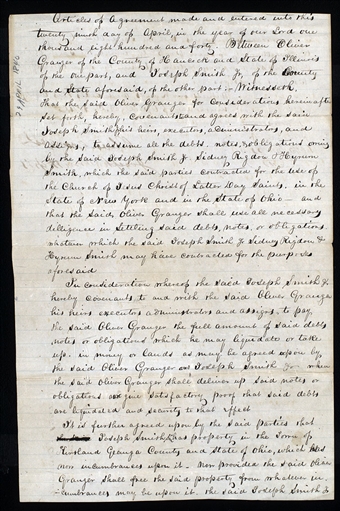 Articles of Agreement made and entered into this
twenty ninth day of April, in the year of our Lord one
thousand eight hundred and forty. Between Oliver
Granger of the County of Hancock and State of Illinois
of the one part, and Joseph Smith Jr, of the County
and State aforesaid, of the other part:- Witnesseth,
That the said Oliver Granger for Considerations hereinafter
set forth, hereby, covenants and agrees with the said
Joseph Smith Jr his heirs, executors, administrators, and
assigns, to assume all the debts, notes, & obligations owing
by the said Joseph Smith Jr. Sidney Rigdon & Hyrum
Smith, which the said parties contracted for the use of
the Church of Jesus Christ of Latter Day Saints, in the
State of New York and in the State of Ohio - and
that the said Oliver Granger shall use all necessary
deligence in settling said debts, notes, or obligations,
whatever which the said Joseph Smith Jr Sidney Rigdon &
Hyrum Smith may have contracted for the purposes
aforesaid
In consideration whereof the said Joseph Smith Jr
hereby covenants to and with the said Oliver Granger
his heirs executors administrators and assigns, to pay,
the said Oliver Granger the full amount of said debts
notes or obligations which he may liquidate or take
up, in money or lands as may be agreed upon by
the said Oliver Granger or Joseph Smith Jr when
the said Oliver Granger shall deliver up said notes or
obligations or give satisfactory proof that said debts
are liquidated and security to that effect
It is further agreed upon by the said Parties that
Joseph Smith Jr has property in the Town of
Kirtland Geauga County and State of Ohio, which has
now incumbrances upon it - Now provided the said Oliver
Granger shall free the said property from whatever in-
-cumbrances may be upon it. the said Joseph Smith Jr